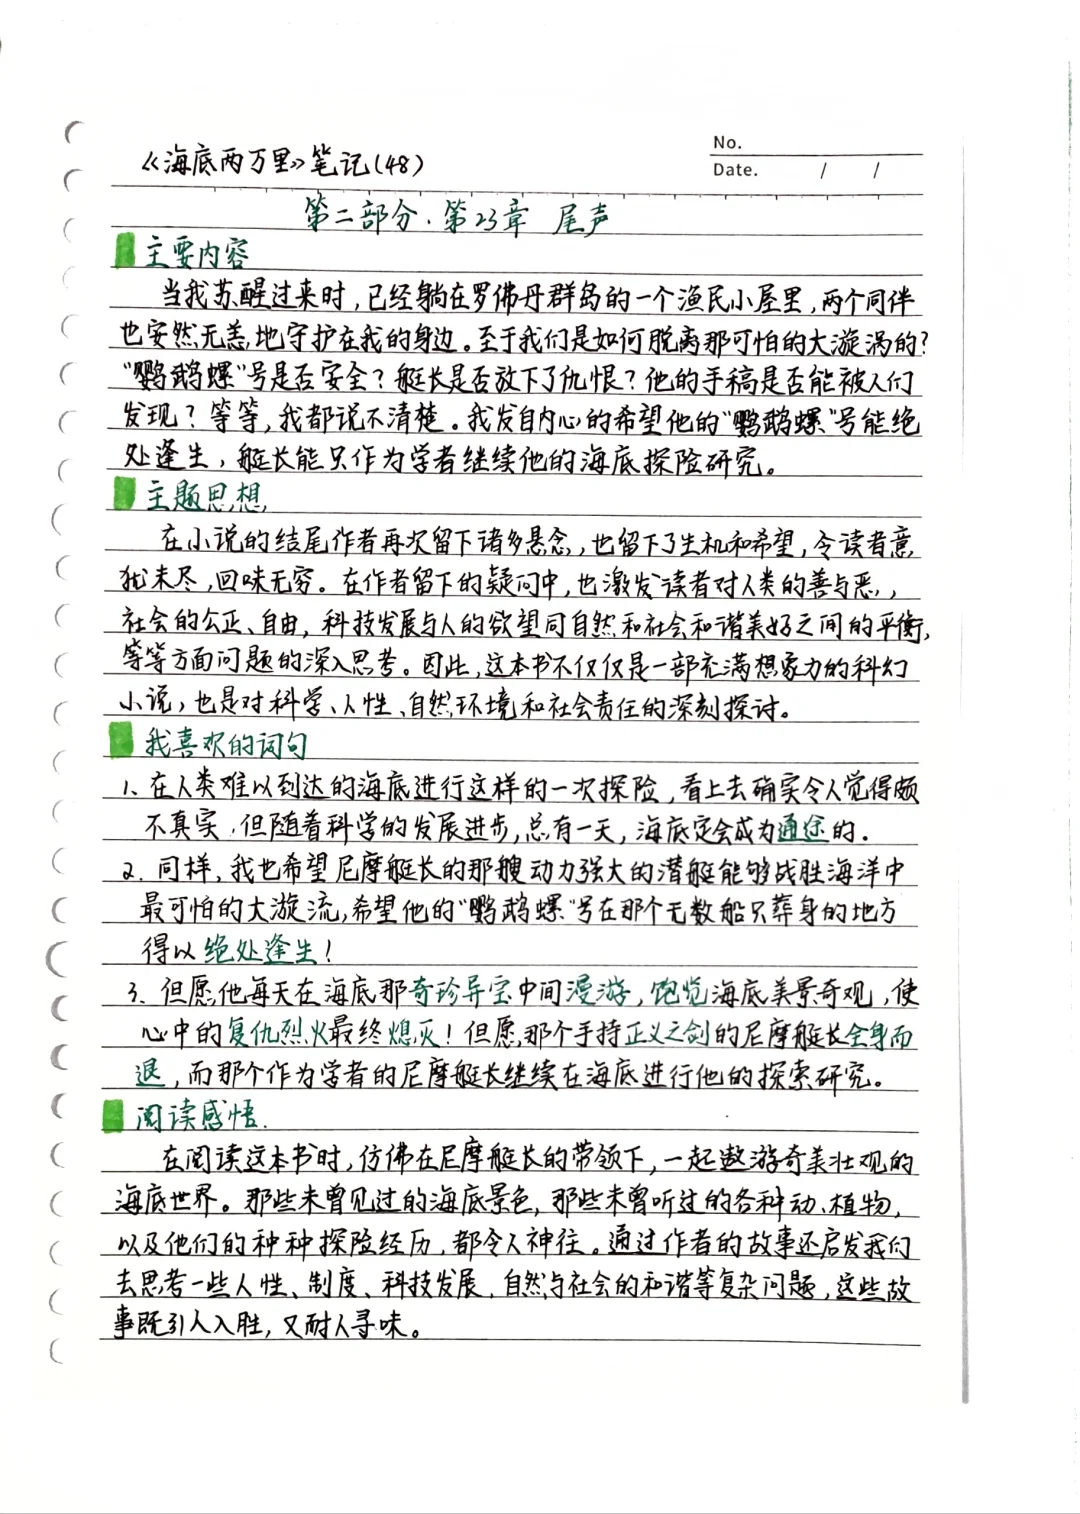 No.
《海底两万里》笔记(48)
Date. / /
第二部分·第23章 尾声
主要内容
当我苏醒过来时,已经躺在罗佛丹群岛的一个渔民小屋里,两个同伴
也安然无恙地守护在我的身边。至于我们是如何脱离那可怕的大漩涡的?
“鹦鹉螺”号是否安全?艇长是否放下了仇恨?他的手稿是否能被人们
发现?等等,我都说不清楚。我发自内心的希望他的“鹦鹉螺”号能绝
处逢生,艇长能只作为学者继续他的海底探险研究。
主题思想
在小说的结尾作者再次留下诸多悬念,也留下了生机和希望,令读者意
犹未尽,回味无穷。在作者留下的疑问中,也激发读者对人类的善与恶,
社会的公正、自由,科技发展与人的欲望同自然和社会和谐美好之间的平衡,
等等方面问题的深入思考。因此,这本书不仅仅是一部充满想象力的科幻
小说,也是对科学、人性、自然环境和社会责任的深刻探讨。
我喜欢的词句
1、在人类难以到达的海底进行这样的一次探险,看上去确实令人觉得颇
不真实,但随着科学的发展进步,总有一天,海底定会成为通途的.
2. 同样,我也希望尼摩艇长的那艘动力强大的潜艇能够战胜海洋中
最可怕的大漩流,希望他的“鹦鹉螺”号在那个无数船只葬身的地方
得以绝处逢生!
3. 但愿他每天在海底那奇珍异宝中间漫游,饱览海底美景奇观,使
心中的复仇烈火最终熄灭!但愿,那个手持正义之剑的尼摩艇长全身而
退,而那个作为学者的尼摩艇长继续在海底进行他的探索研究。
阅读感悟.
在阅读这本书时,仿佛在尼摩艇长的带领下,一起遨游奇美壮观的
海底世界。那些未曾见过的海底景色,那些未曾听过的各种动、植物,
以及他们的种种探险经历,都令人神往。通过作者的故事还启发我们
去思考一些人性、制度、科技发展、自然与社会的和谐等复杂问题,这些故
事既引人入胜,又耐人寻味。